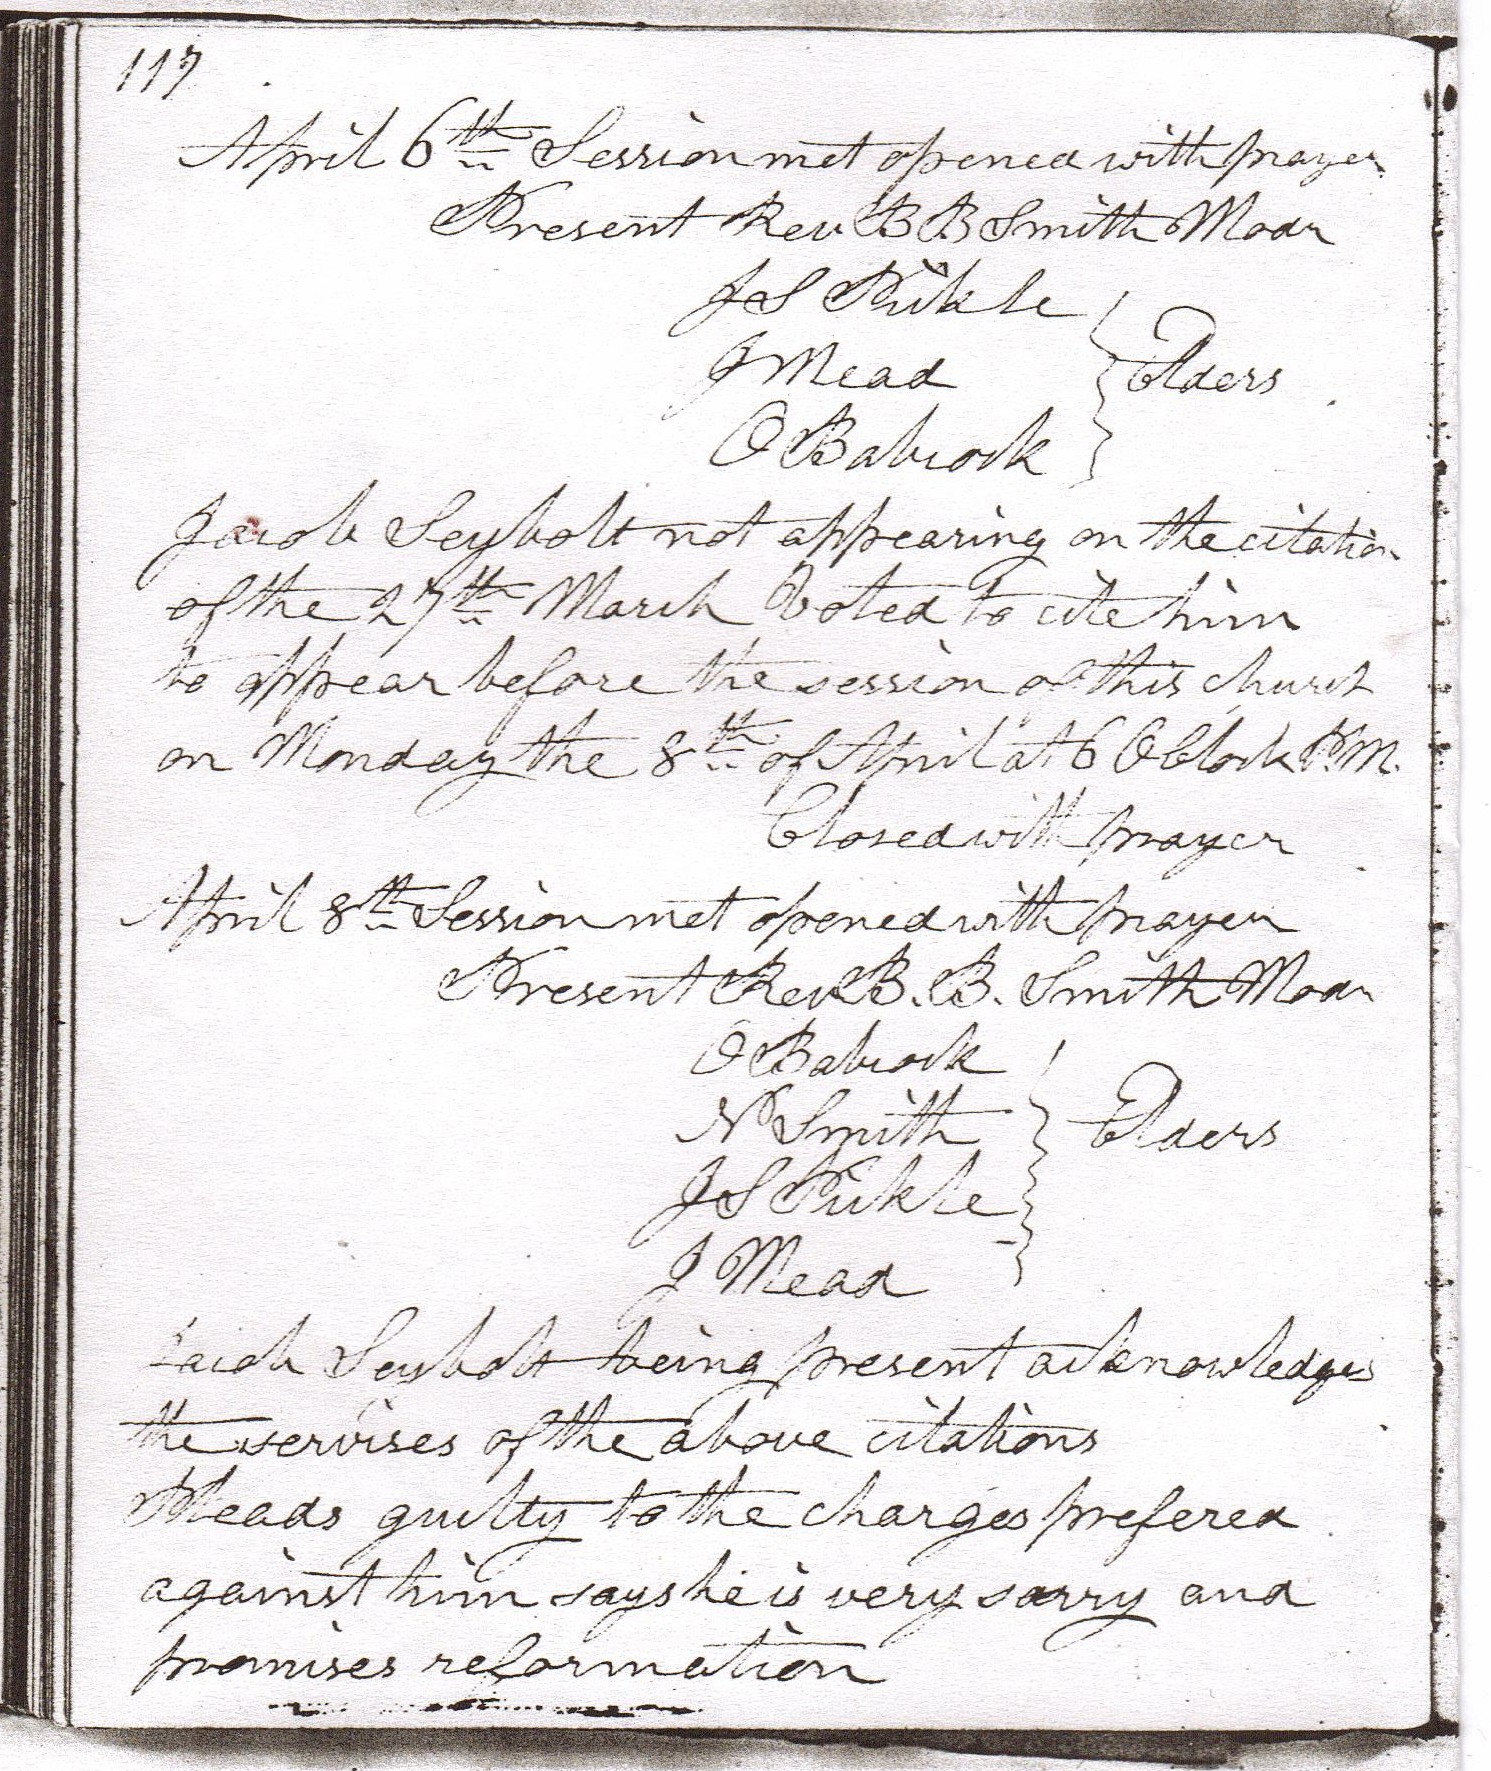 117
April 6th Session met opened with prayer
Present Rev B B Smith Modr
J S Pickle
J Mead
Elders
O Babcock
Jacob Seybolt not appearing on the citation
of the 27th March Voted to cite him
to appear before the session of this church
on Monday the 8th of April at 6 OClock P.M.
Closed with prayer
April 8th Session met opened with prayer
Present Rev B. B. Smith Modr
O Babcock
N Smith
Elders
J S Pickle
J Mead
Jacob Seybolt being present acknowledges
the servises of the above citations
Pleads guilty to the charges prefered
against him says he is very sorry and
promises reformation